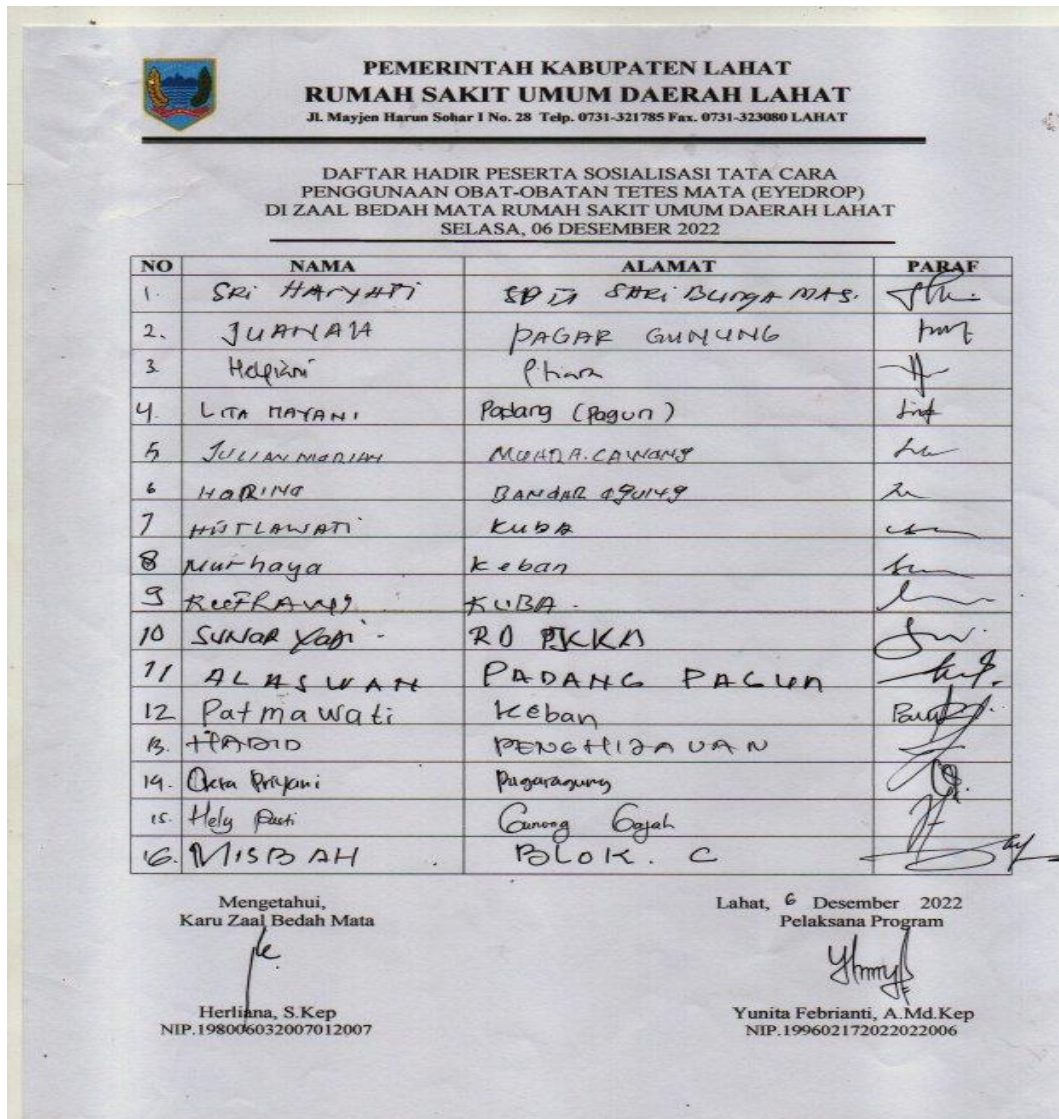 PEMERINTAH KABUPATEN LAHAT
RUMAH SAKIT UMUM DAERAH LAHAT
Jl. Mayjen Harun Sohar I No. 28 Telp. 0731-321785 Fax. 0731-323080 LAHAT
DAFTAR HADIR PESERTA SOSIALISASI TATA CARA
PENGGUNAAN OBAT-OBATAN TETES MATA (EYEDROP)
DI ZAAL BEDAH MATA RUMAH SAKIT UMUM DAERAH LAHAT
SELASA, 06 DESEMBER 2022
NO NAMA ALAMAT PARAF
1. SRi HARYATi BUNGA MAS.
2. JUANAH PAGAR GUNUNG
3.
4. LITA MAYANI Padang (Pagun)
5 CAWANG
6 HARINO BANDAR
7 KUBA
8 Nurhaya Keban
9 KUBA.
10 SUNAR RD PKKA
11 ALASWAN PADANG PAGUN
12 Patmawati Keban
13. HADID
14. Priyani Pagaragung
15. Hely Gunung Gajah
16. MISBAH BLOK. C
Mengetahui,
Karu Zaal Bedah Mata
Herliana, S.Kep
NIP.198006032007012007
Lahat, 6 Desember 2022
Pelaksana Program
Yunita Febrianti, A.Md.Kep
NIP.199602172022022006